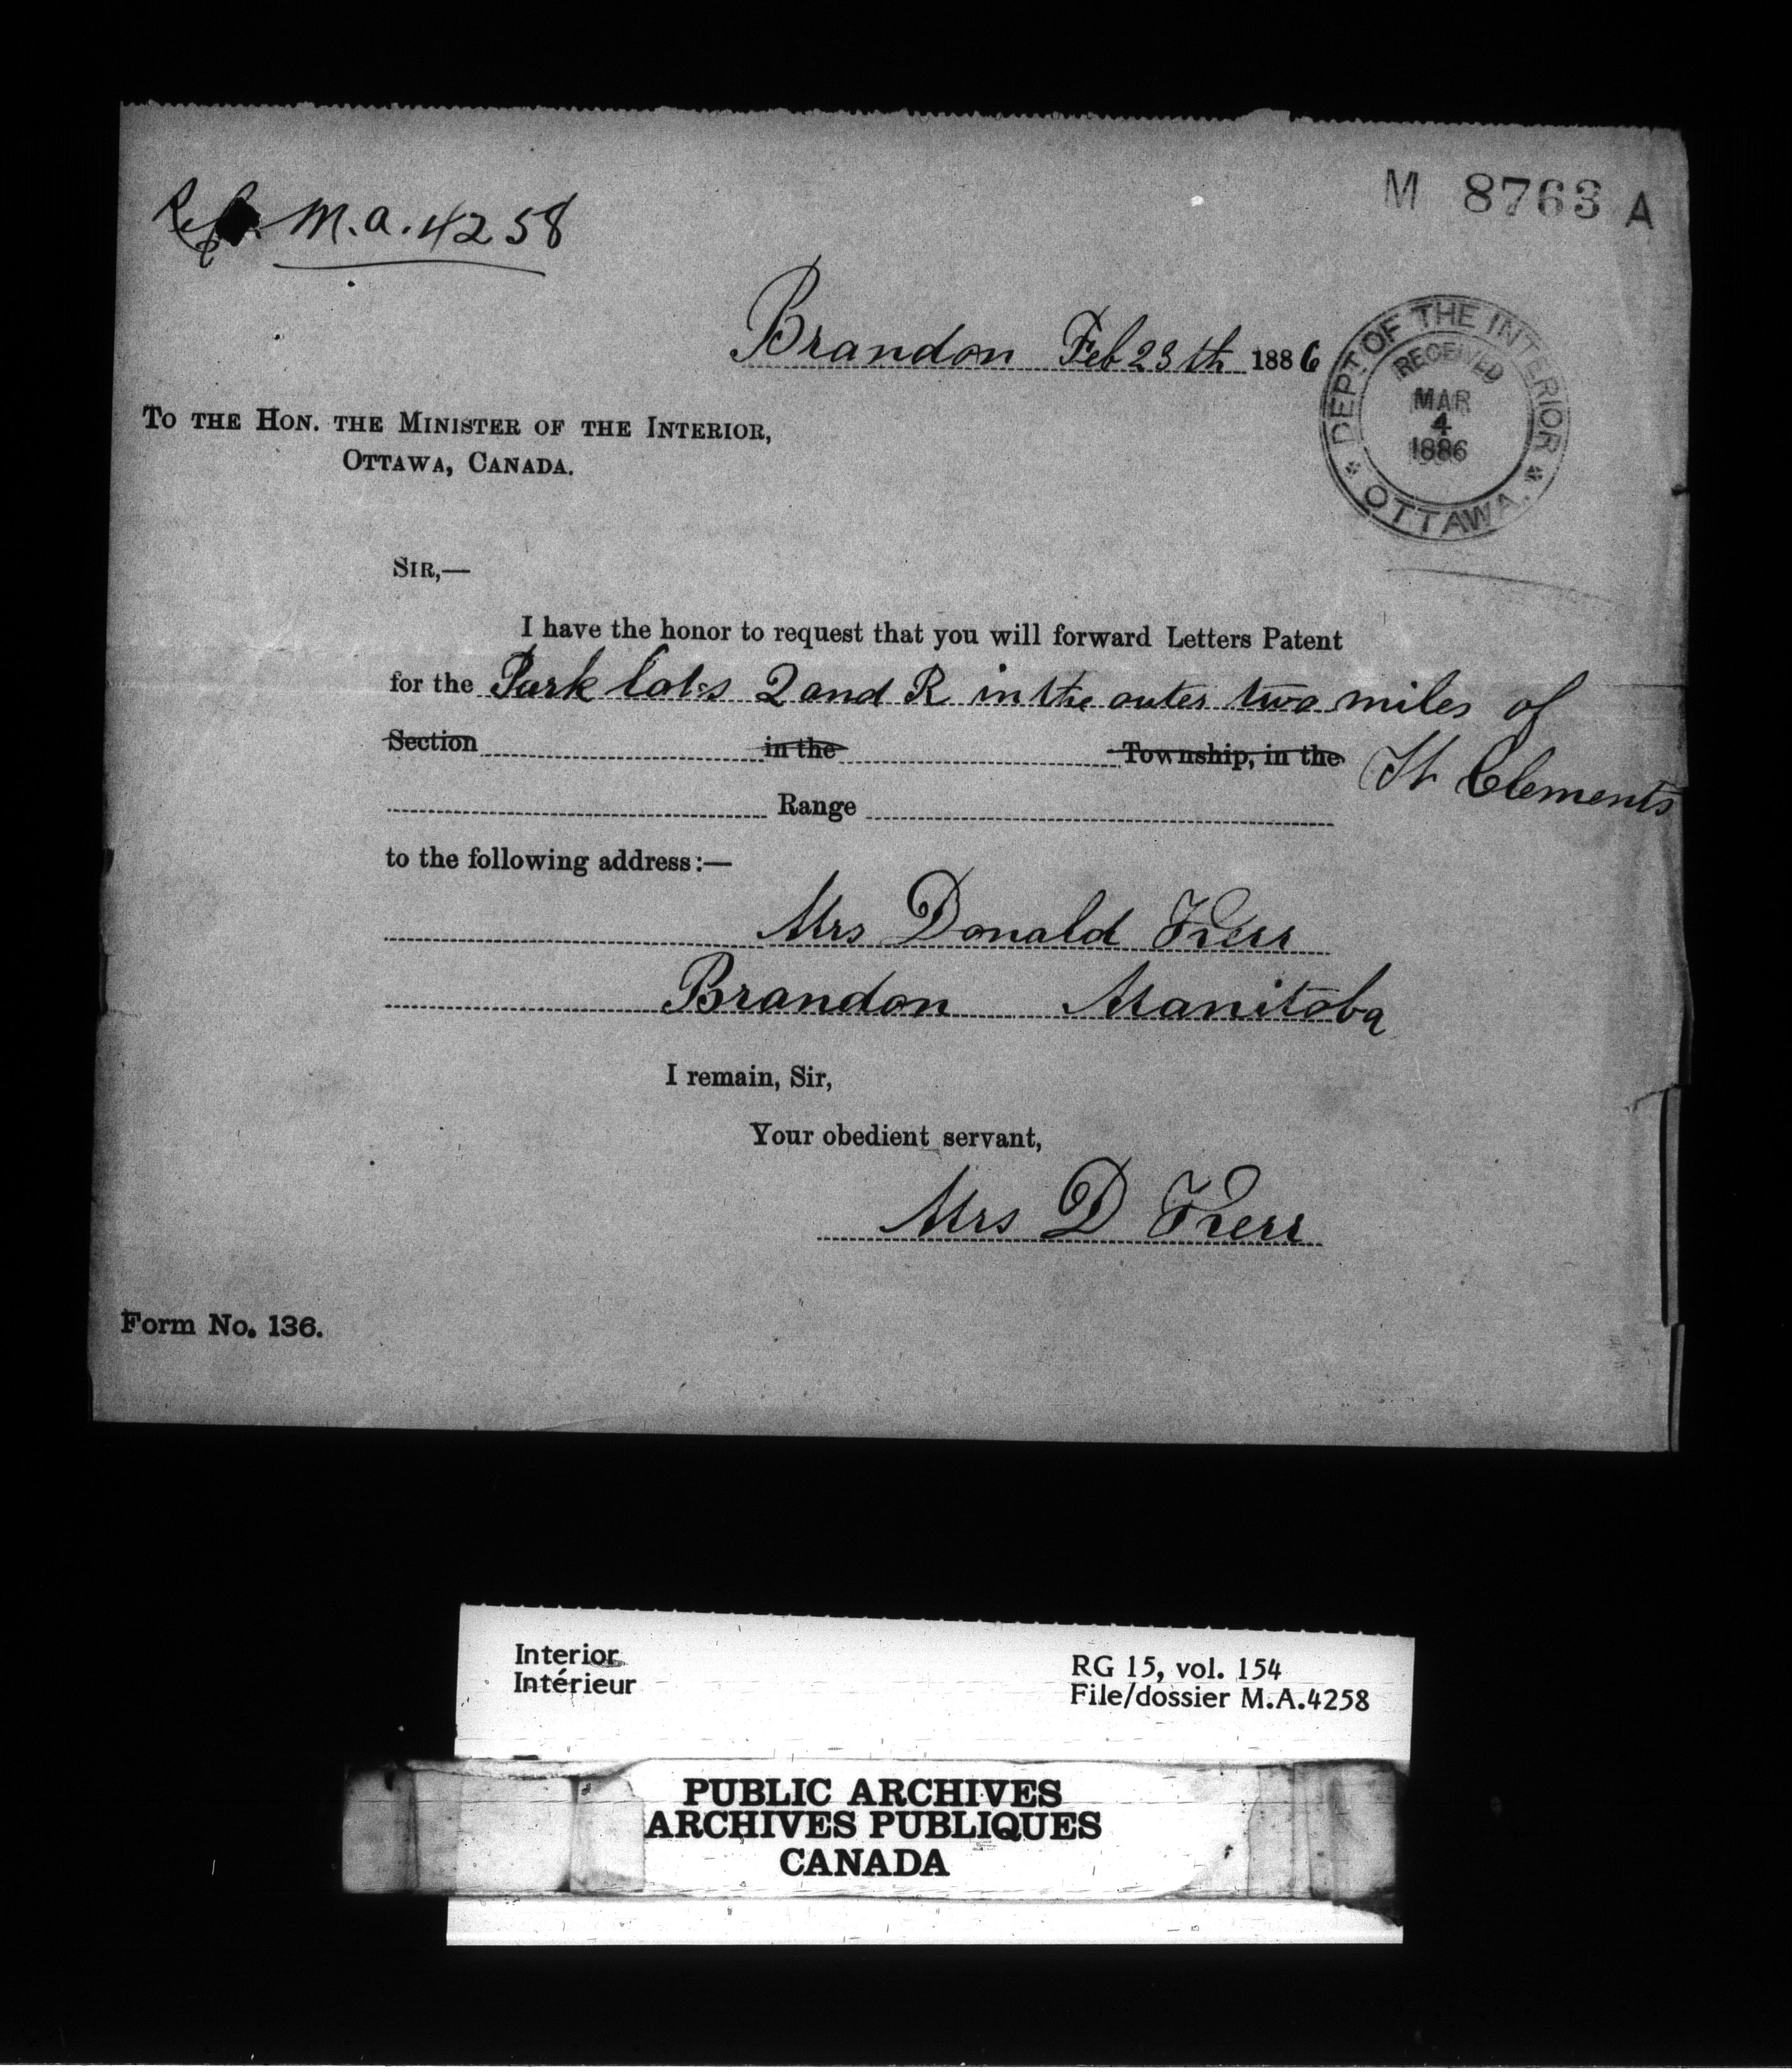 Ref. M.A. 4258
M 8763 A
Brandon Feb 23th 1886
DEPT. OF THE INTERIOR
RECEIVED
MAR
4
1886
OTTAWA.
To the Hon. the Minister of the Interior,
Ottawa, Canada.
Sir,—
I have the honor to request that you will forward Letters Patent
for the Park lots 2 and R in the outer two miles of
Section in the Township, in the St Clements
Range
to the following address:—
Mrs Donald Kerr
Brandon Manitoba
I remain, Sir,
Your obedient servant,
Mrs D Kerr
Form No. 136.
Interior
Intérieur
RG 15, vol. 154
File/dossier M.A.4258
PUBLIC ARCHIVES
ARCHIVES PUBLIQUES
CANADA